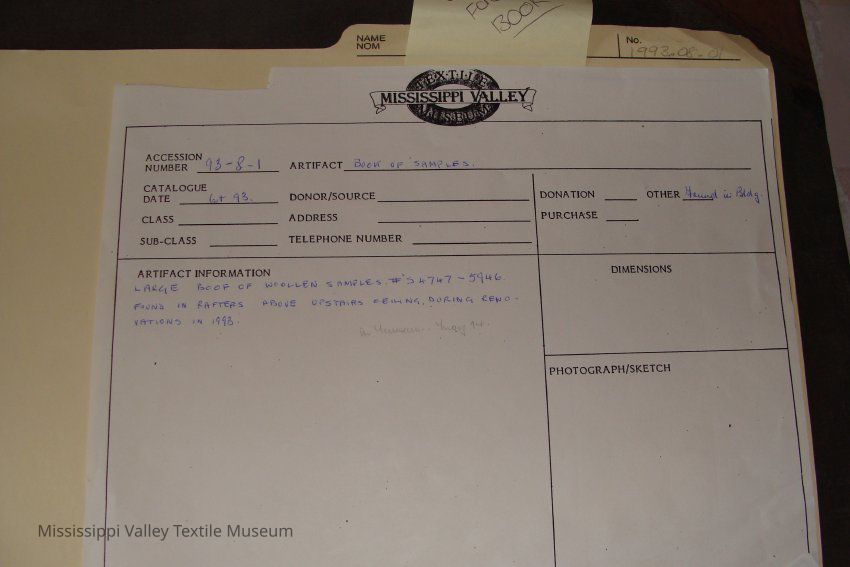 BOOK
NAME
NOM
No.
1993-08-01
TEXTILE
MISSISSIPPI VALLEY
MUSEUM
ACCESSION
NUMBER 93-8-1 ARTIFACT BOOK OF SAMPLES.
CATALOGUE
DATE Oct 93. DONOR/SOURCE DONATION OTHER Found in Bldg.
CLASS ADDRESS PURCHASE
SUB-CLASS TELEPHONE NUMBER
ARTIFACT INFORMATION DIMENSIONS
LARGE BOOK OF WOOLLEN SAMPLES. #'S 4747-5946
FOUND IN RAFTERS ABOVE UPSTAIRS CEILING, DURING RENO-
VATIONS IN 1993.
PHOTOGRAPH/SKETCH
Mississippi Valley Textile Museum